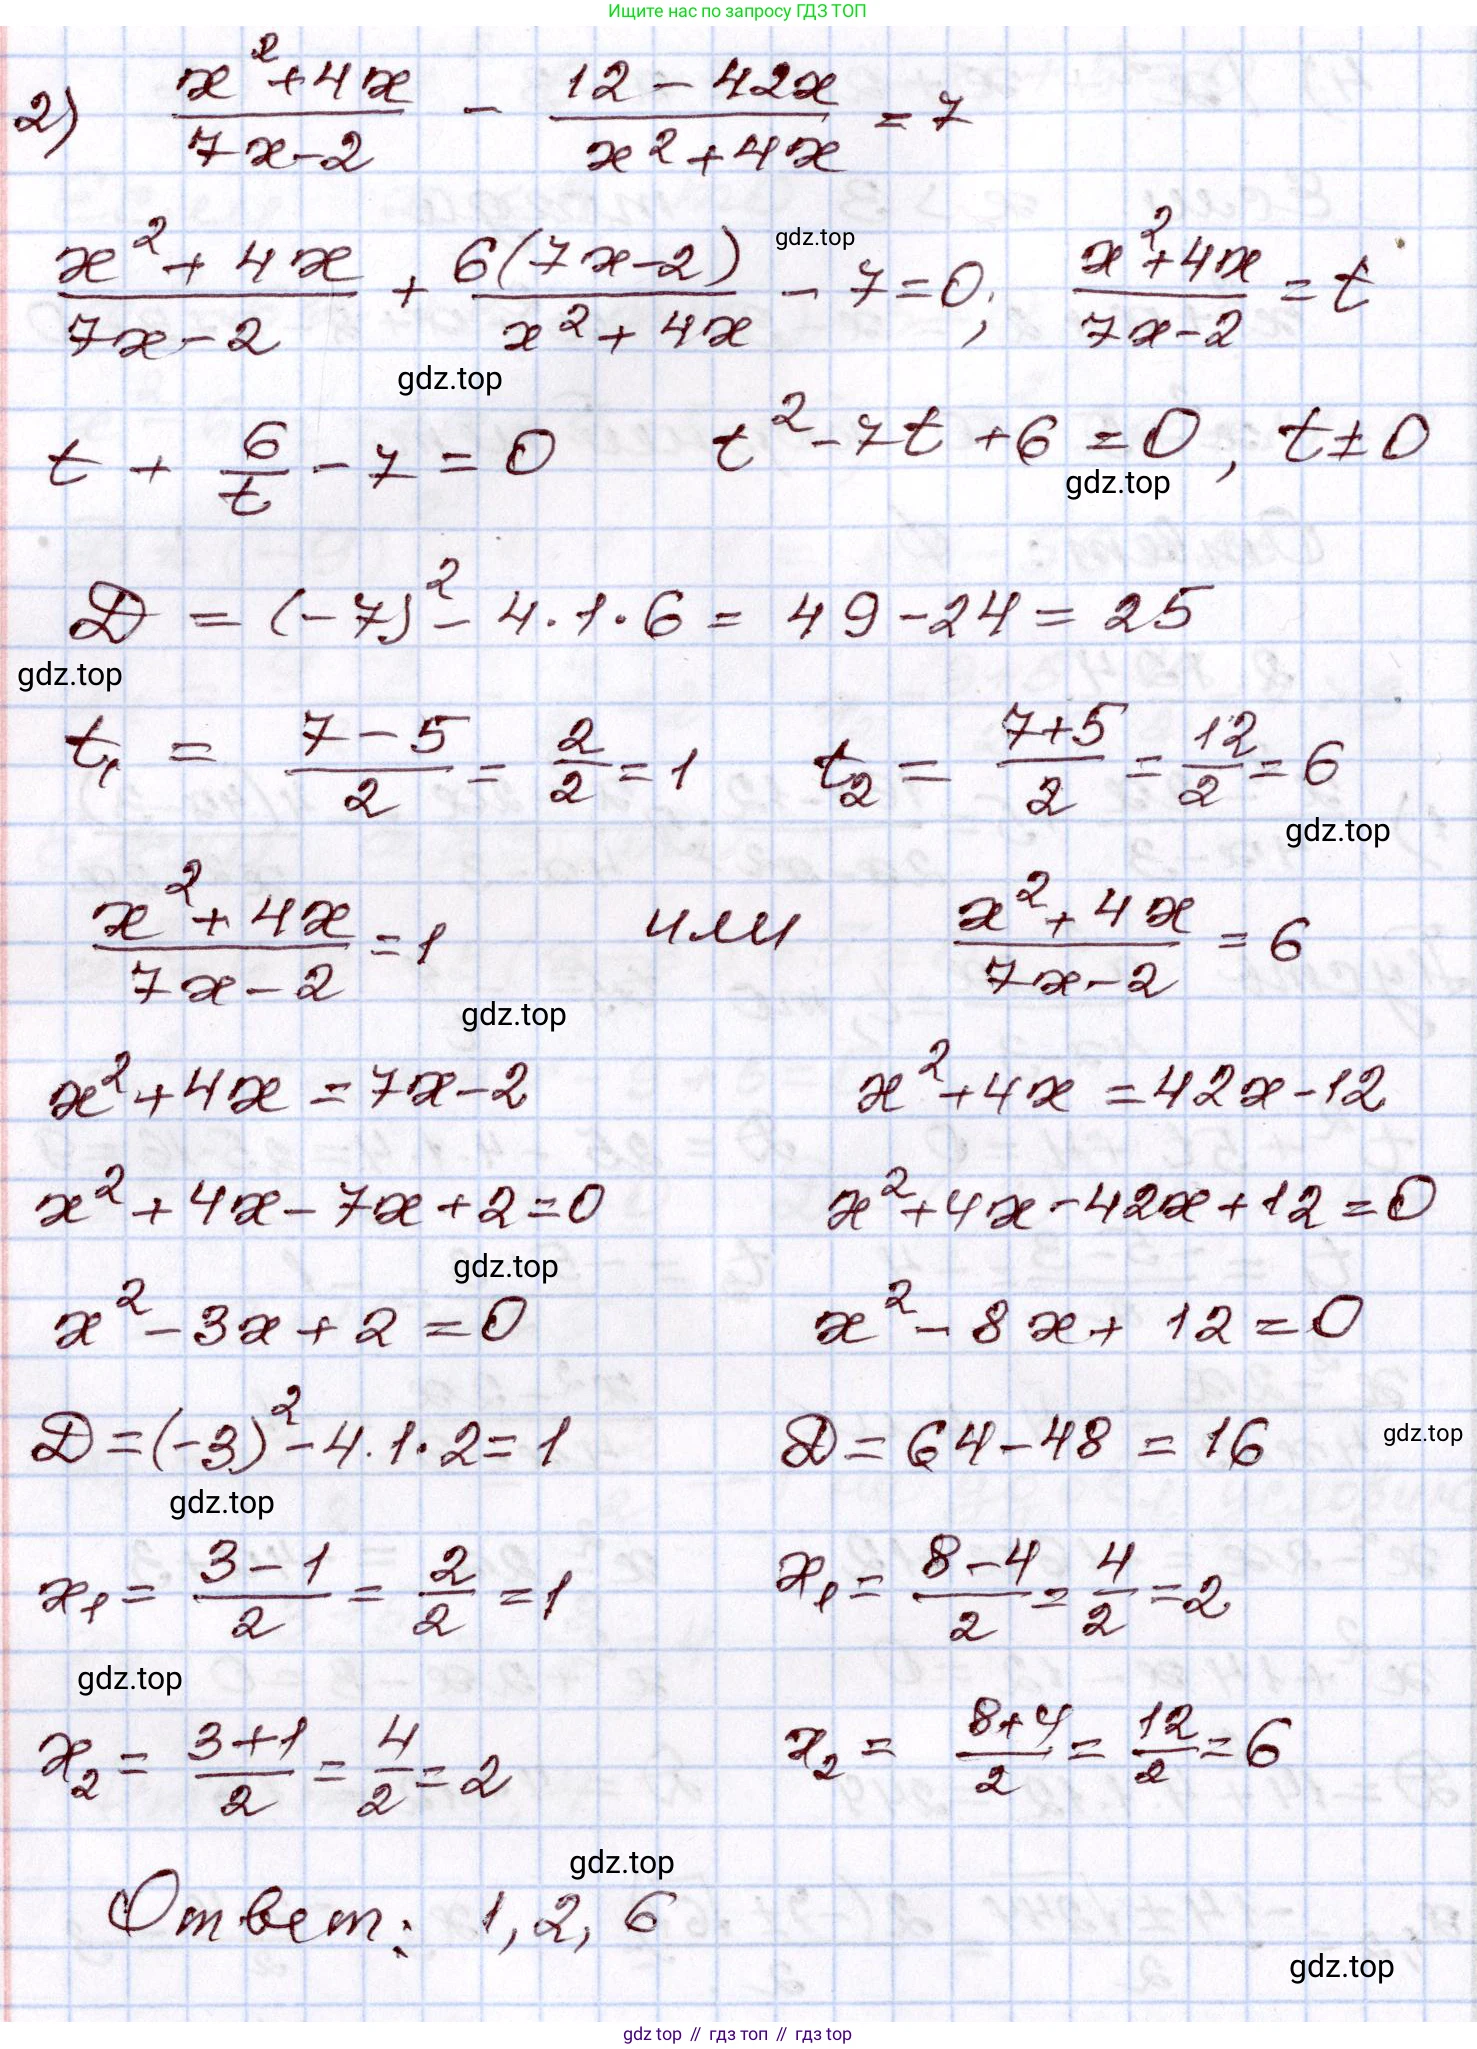 Ищите нас по запросу ГДЗ ТОП
2) (x²+4x)/(7x-2) - (12-42x)/(x²+4x) = 7
gdz.top
(x²+4x)/(7x-2) + 6(7x-2)/(x²+4x) - 7=0; (x²+4x)/(7x-2) = t
gdz.top
t + 6/t - 7 = 0 t²-7t+6=0, t≠0
gdz.top
D = (-7)²-4·1·6 = 49-24 = 25
gdz.top
t₁ = (7-5)/2 = 2/2 = 1 t₂ = (7+5)/2 = 12/2 = 6
gdz.top
(x²+4x)/(7x-2) = 1 или (x²+4x)/(7x-2) = 6
gdz.top
x²+4x = 7x-2 x²+4x = 42x-12
x²+4x-7x+2=0 x²+4x-42x+12=0
gdz.top
x²-3x+2=0 x²-8x+12=0
D=(-3)²-4·1·2=1 D=64-48=16
gdz.top
gdz.top
x₁ = (3-1)/2 = 2/2 = 1 x₁ = (8-4)/2 = 4/2 = 2
gdz.top
x₂ = (3+1)/2 = 4/2 = 2 x₂ = (8+4)/2 = 12/2 = 6
gdz.top
Ответ: 1, 2, 6
gdz.top
gdz top // гдз топ // гдз top